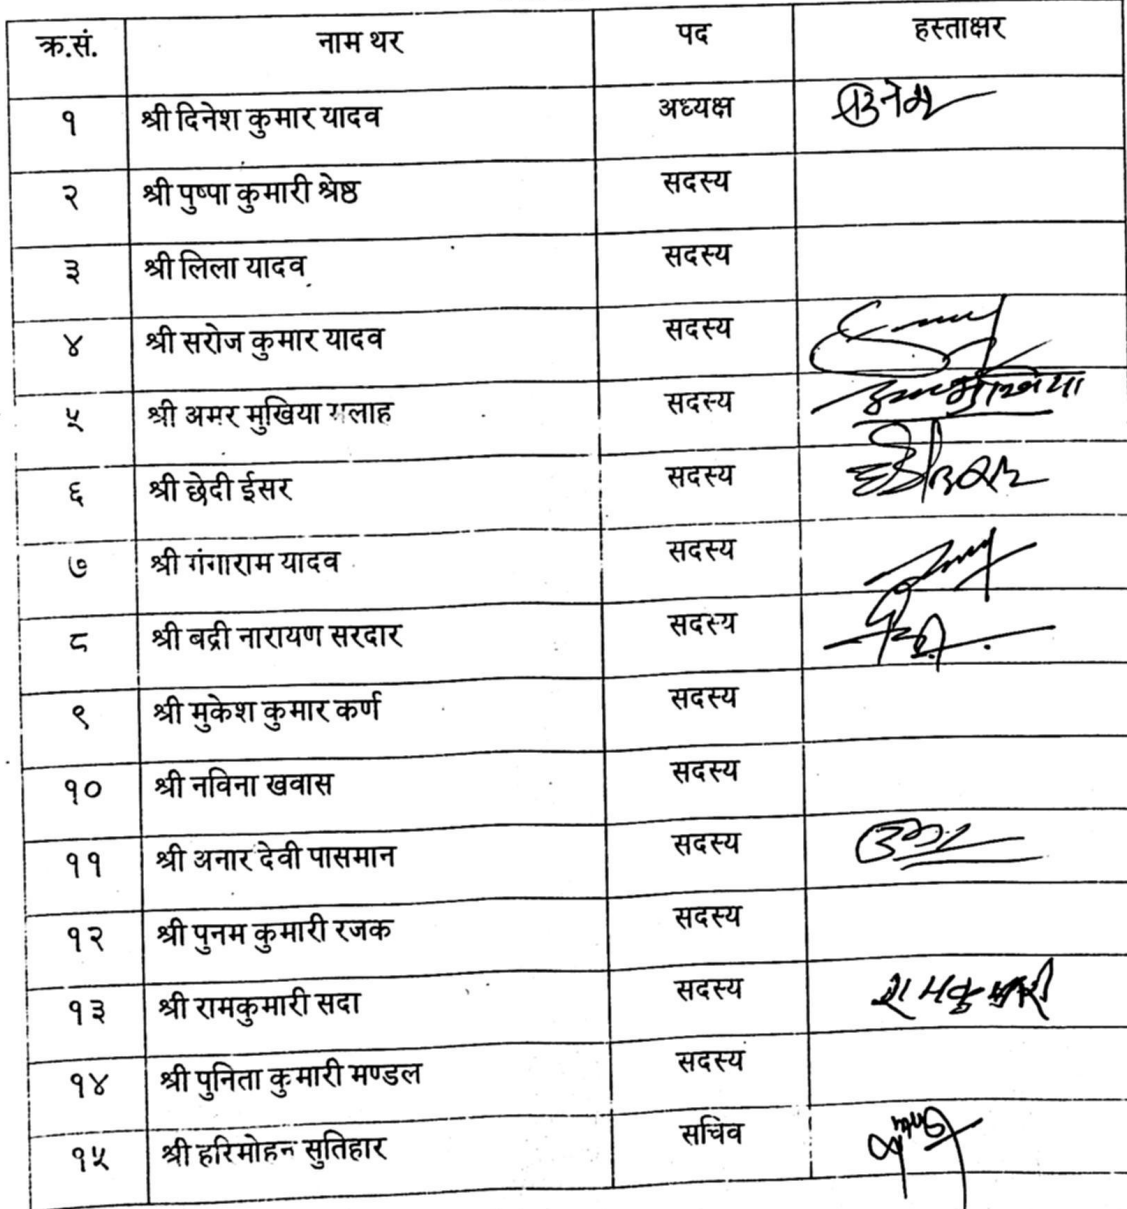 क्र.सं. नाम थर पद हस्ताक्षर
१ श्री दिनेश कुमार यादव अध्यक्ष दिनेश
२ श्री पुष्पा कुमारी श्रेष्ठ सदस्य
३ श्री लिला यादव सदस्य
४ श्री सरोज कुमार यादव सदस्य
५ श्री अमर मुखिया मलाह सदस्य
६ श्री छेदी ईसर सदस्य
७ श्री गंगाराम यादव सदस्य
८ श्री बद्री नारायण सरदार सदस्य
९ श्री मुकेश कुमार कर्ण सदस्य
१० श्री नविना खवास सदस्य
११ श्री अनार देवी पासमान सदस्य
१२ श्री पुनम कुमारी रजक सदस्य
१३ श्री रामकुमारी सदा सदस्य रामकुमारी
१४ श्री पुनिता कुमारी मण्डल सदस्य
१५ श्री हरिमोहन सुतिहार सचिव